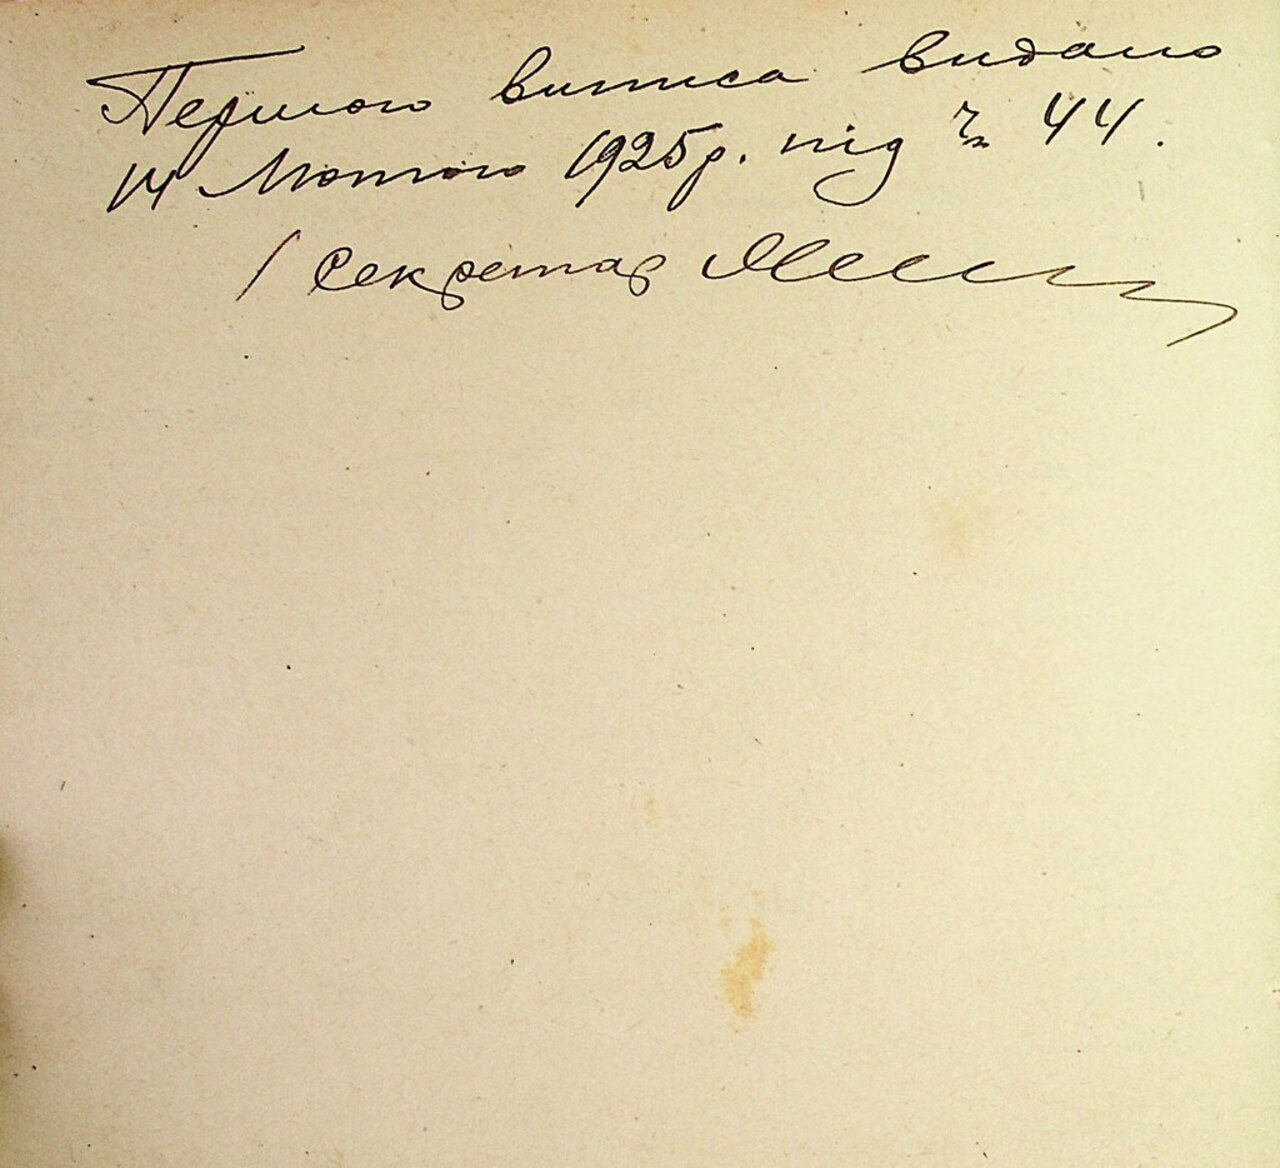 Першого виписа видано
14 Лютого 1925 р. під Ч. 44.
/ Секретар